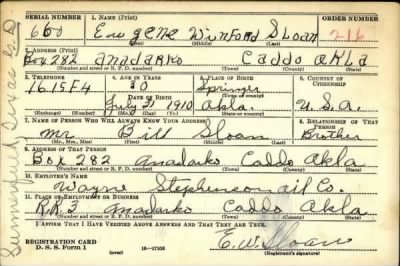 SERIAL NUMBER 1. NAME (Print) ORDER NUMBER
660 Eugene Winford Sloan 216
2. ADDRESS (Print)
Box 282 Anadarko Caddo Okla
(Number and street or R. F. D. number) (Town) (County) (State)
3. TELEPHONE 4. AGE IN YEARS 5. PLACE OF BIRTH 6. COUNTRY OF CITIZENSHIP
1615F4 30 Springer
DATE OF BIRTH (Town or county)
July 31 1910 Okla. U.S.A.
(Exchange) (Number) (Mo.) (Day) (Yr.) (State or country)
7. NAME OF PERSON WHO WILL ALWAYS KNOW YOUR ADDRESS 8. RELATIONSHIP OF THAT PERSON
Mr Bill Sloan Brother
(Mr., Mrs., Miss) (First) (Middle) (Last)
9. ADDRESS OF THAT PERSON
Box 282 Anadarko Caddo Okla
(Number and street or R. F. D. number) (Town) (County) (State)
10. EMPLOYER'S NAME
Wayne Stephenson oil Co.
11. PLACE OF EMPLOYMENT OR BUSINESS
R.R.3 Anadarko Caddo Okla
(Number and street or R. F. D. number) (Town) (County) (State)
I AFFIRM THAT I HAVE VERIFIED ABOVE ANSWERS AND THAT THEY ARE TRUE.
REGISTRATION CARD
D. S. S. Form 1 16—17105 E. W. Sloan
(Registrant's signature)